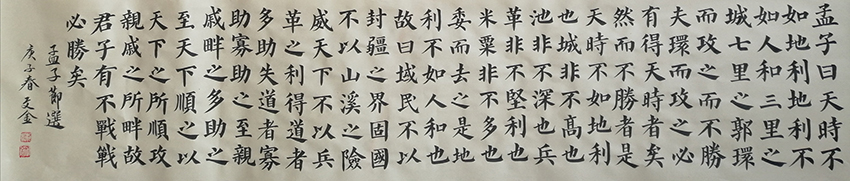 孟子曰天時不
如地利地利不
如人和三里之
城七里之郭環
而攻之而不勝
夫環而攻之必
有得天時者矣
然而不勝者是
天時不如地利
也城非不高也
池非不深也兵
革非不堅利也
米粟非不多也
委而去之是地
利不如人和也
故曰域民不以
封疆之界固國
不以山溪之險
威天下不以兵
革之利得道者
多助失道者寡
助寡助之至親
戚畔之多助之
至天下順之以
天下之所順攻
親戚之所畔故
君子有不戰戰
必勝矣
孟子節選
庚子春文金